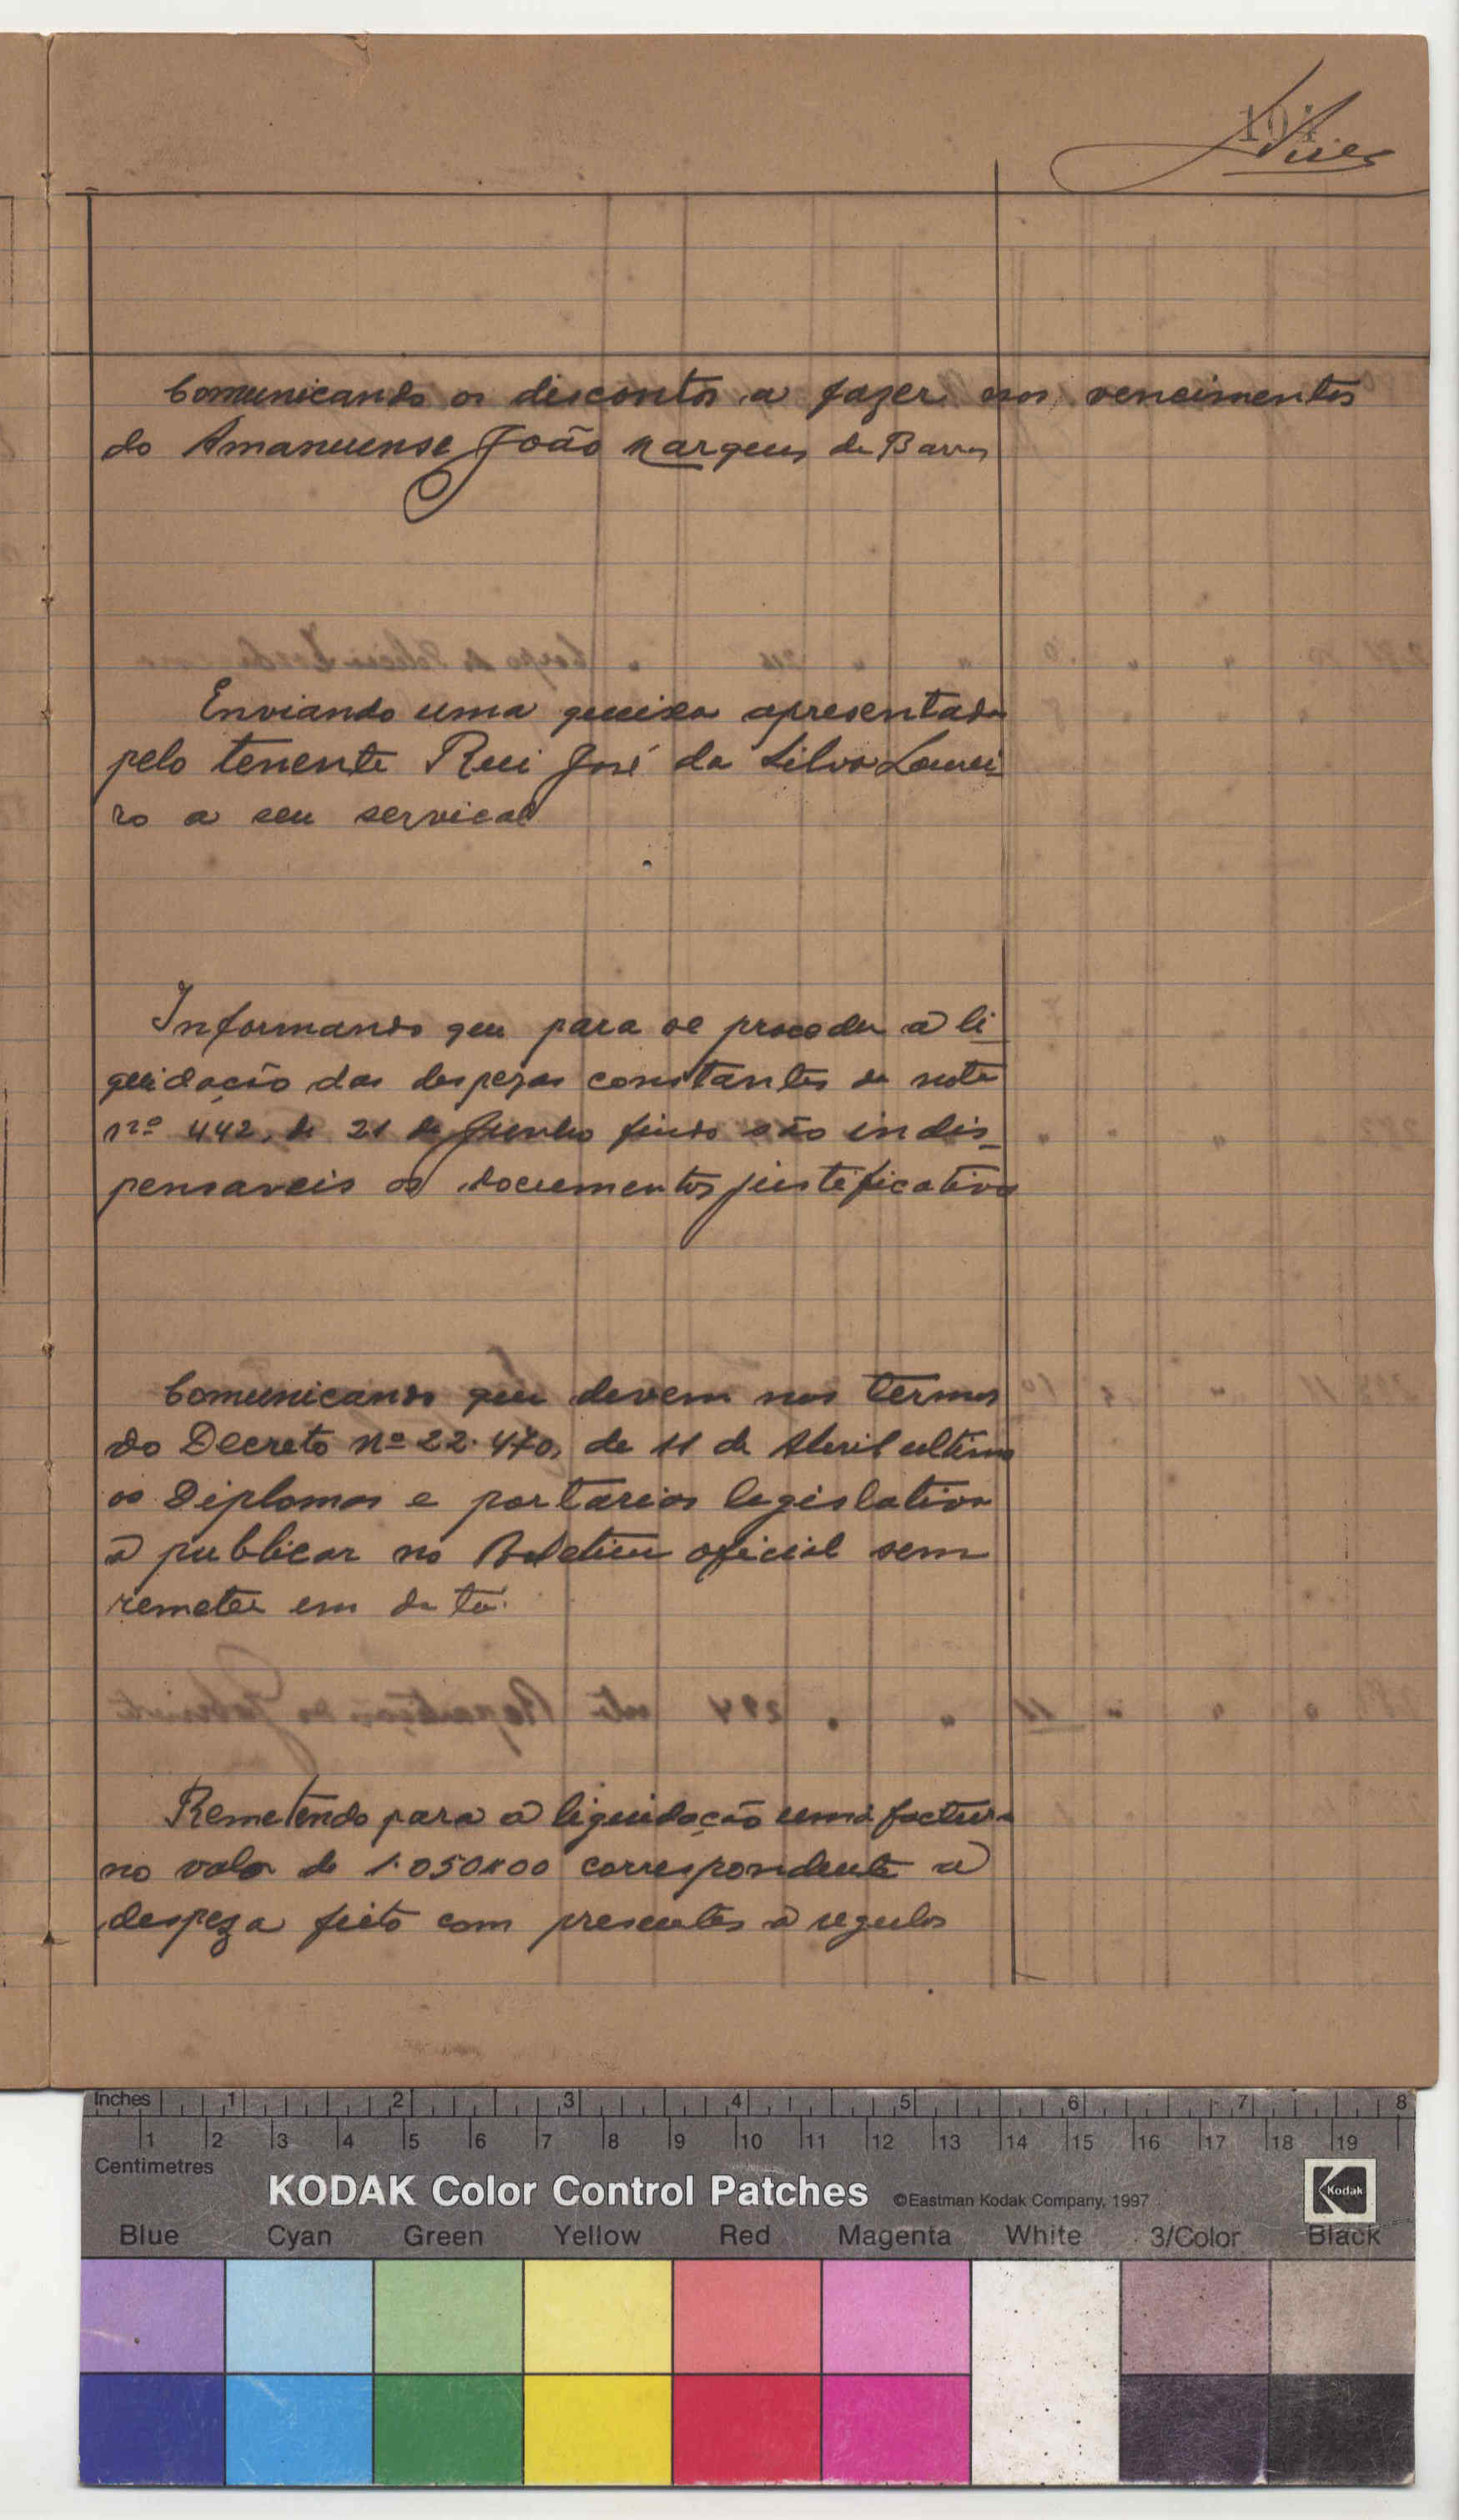 104
Comunicando os discontos a fazer nos vencimentos
do Amanuense João Marques de Barros
Enviando uma queixa apresentada
pelo tenente Rui José da Silva Lourei
ro a seu serviçal
Informando que para se proceder á li
quidação das despezas constantes da nota
nº 442, de 21 de Junho findo são indis_
pensaveis os documentos justificativos
Comunicando que devem nos termos
do Decreto nº 22.470, de 11 de Abril ultimo
os Diplomas e portarias legislativos
a publicar no Boletim oficial sem
em
Remetendo para a liquidação uma factura
no valor de 1.050$00 correspondente a
despeza feita com presentes a regulos
Inches 1 2 3 4 5 6 7 8
1 2 3 4 5 6 7 8 9 10 11 12 13 14 15 16 17 18 19
Centimetres
KODAK Color Control Patches ©Eastman Kodak Company, 1997 Kodak
Blue Cyan Green Yellow Red Magenta White 3/Color Black